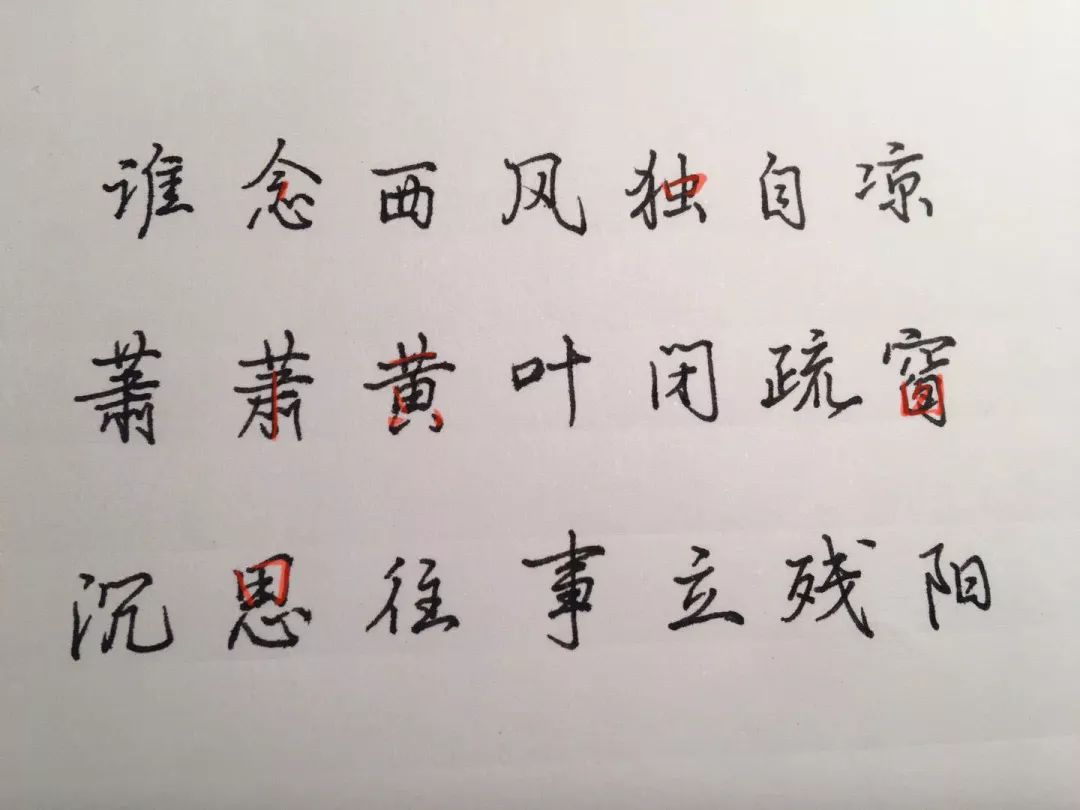 谁念西风独自凉
萧萧黄叶闭疏窗
沉思往事立残阳